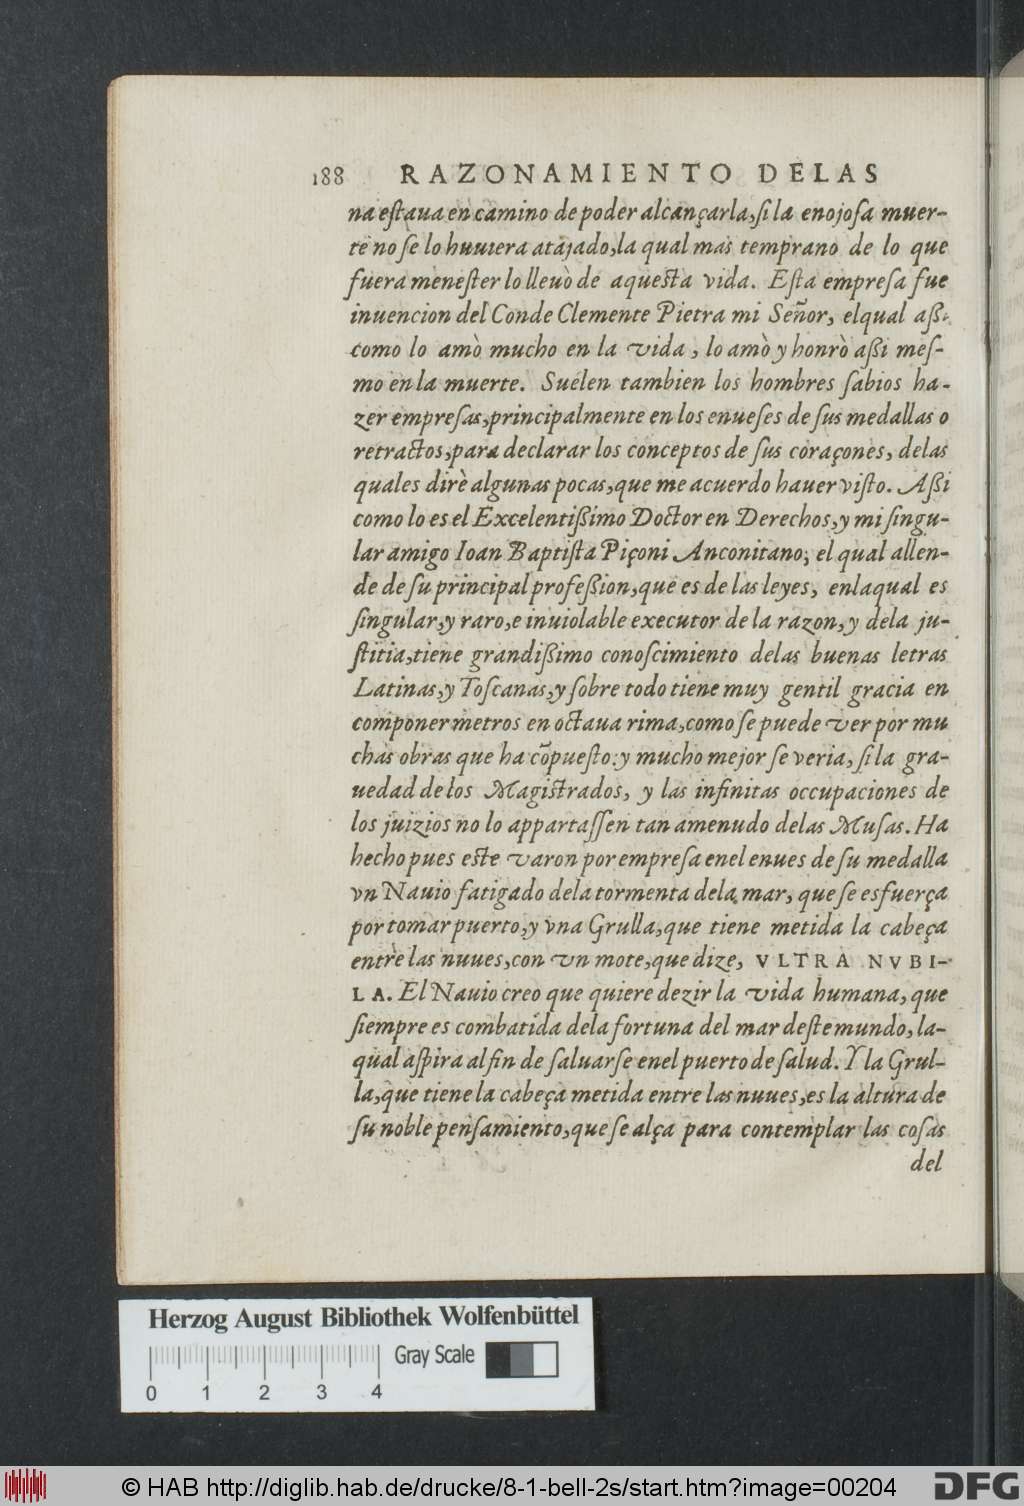 188 RAZONAMIENTO DELAS
na eſtaua en camino de poder alcançarla, ſi la enojoſa muer-
te no ſe lo huuiera atajado, la qual mas temprano de lo que
fuera meneſter lo lleuò de aqueſta vida. Eſta empreſa fue
inuencion del Conde Clemente Pietra mi Señor, elqual aßi
como lo amò mucho en la vida, lo amò y honrò aßi meſ-
mo en la muerte. Suelen tambien los hombres ſabios ha-
zer empreſas, principalmente en los enueſes de ſus medallas o
retractos, para declarar los conceptos de ſus coraçones, delas
quales dirè algunas pocas, que me acuerdo hauer viſto. Aßi
como lo es el Excelentißimo Doctor en Derechos, y mi ſingu-
lar amigo Ioan Baptiſta Piçoni Anconitano, el qual allen-
de de ſu principal profeßion, que es de las leyes, enlaqual es
ſingular, y raro, e inuiolable executor de la razon, y dela ju-
ſtitia, tiene grandißimo conoſcimiento delas buenas letras
Latinas, y Toſcanas, y ſobre todo tiene muy gentil gracia en
componer metros en octaua rima, como ſe puede ver por mu
chas obras que ha cõpueſto: y mucho mejor ſe veria, ſi la gra-
uedad de los Magiſtrados, y las infinitas occupaciones de
los juizios no lo appartaſſen tan amenudo delas Muſas. Ha
hecho pues eſte varon por empreſa enel enues de ſu medalla
vn Nauio fatigado dela tormenta dela mar, que ſe esfuerça
por tomar puerto, y vna Grulla, que tiene metida la cabeça
entre las nuues, con vn mote, que dize, VLTRA NVBI-
LA. El Nauio creo que quiere dezir la vida humana, que
ſiempre es combatida dela fortuna del mar deſte mundo, la-
qual aſpira al fin de ſaluarſe enel puerto de ſalud. Y la Grul-
la, que tiene la cabeça metida entre las nuues, es la altura de
ſu noble penſamiento, que ſe alça para contemplar las coſas
del
Herzog August Bibliothek Wolfenbüttel
Gray Scale
0 1 2 3 4
© HAB http://diglib.hab.de/drucke/8-1-bell-2s/start.htm?image=00204
DFG